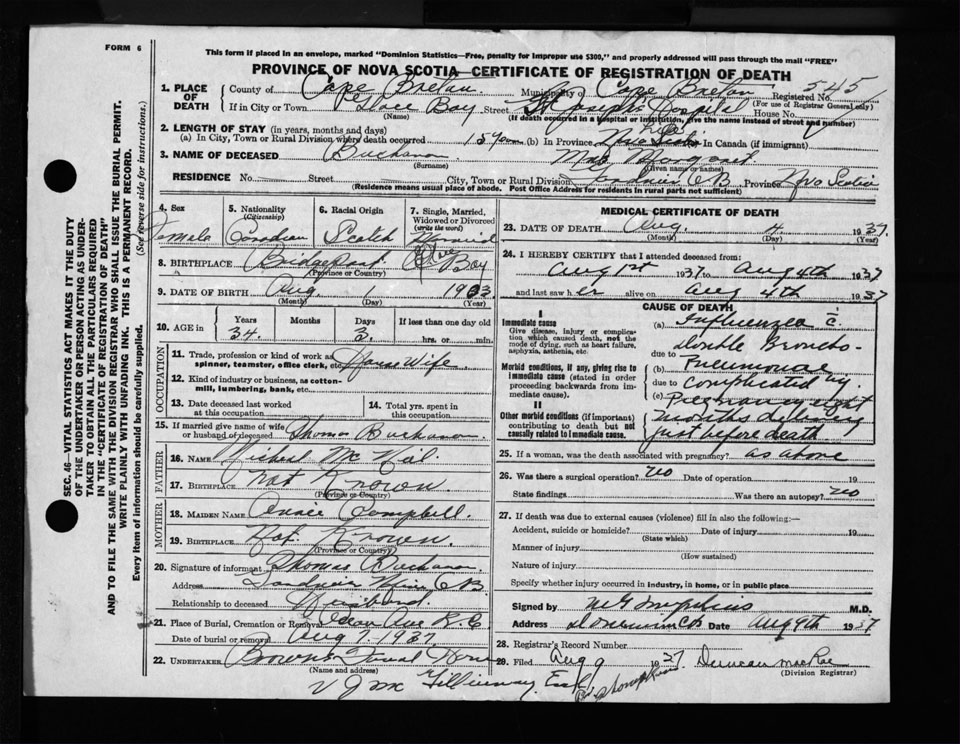 FORM 6
This form if placed in an envelope, marked "Dominion Statistics—Free, penalty for improper use $300," and properly addressed will pass through the mail "FREE"
PROVINCE OF NOVA SCOTIA—CERTIFICATE OF REGISTRATION OF DEATH
SEC. 46—VITAL STATISTICS ACT MAKES IT THE DUTY
OF THE UNDERTAKER OR PERSON ACTING AS UNDER-
TAKER TO OBTAIN ALL THE PARTICULARS REQUIRED
IN THE "CERTIFICATE OF REGISTRATION OF DEATH"
AND TO FILE THE SAME WITH THE DIVISION REGISTRAR WHO SHALL ISSUE THE BURIAL PERMIT.
WRITE PLAINLY WITH UNFADING INK. THIS IS A PERMANENT RECORD.
Every item of information should be carefully supplied. (See reverse side for instructions.)
1. PLACE OF DEATH County of Cape Breton Municipality of Cape Breton Registered No. 545
(For use of Registrar General only)
If in City or Town Glace Bay Street St Joseph's Hospital House No.
(Name) (If death occurred in a hospital or institution, give the name instead of street and number)
2. LENGTH OF STAY (in years, months and days)
(a) In City, Town or Rural Division where death occurred 15 years (b) In Province Life In Canada (if immigrant)
3. NAME OF DECEASED Buchanan Margaret
(Surname) (Given name or names)
RESIDENCE No. Street City, Town or Rural Division C B Province Nova Scotia
(Residence means usual place of abode. Post Office Address for residents in rural parts not sufficient)
4. Sex Female
5. Nationality (Citizenship) Canadian
6. Racial Origin Scotch
7. Single, Married, Widowed or Divorced (write the word) Married
8. BIRTHPLACE Bridgeport Glace Bay
(Province or Country)
9. DATE OF BIRTH Aug 1 1903
(Month) (Day) (Year)
10. AGE in Years 34. Months Days 3. If less than one day old hrs. or min.
OCCUPATION
11. Trade, profession or kind of work as spinner, teamster, office clerk, etc. House Wife
12. Kind of industry or business, as cotton-mill, lumbering, bank, etc.
13. Date deceased last worked at this occupation
14. Total yrs. spent in this occupation
15. If married give name of wife or husband of deceased Thomas Buchanan
FATHER
16. NAME Micheal Mc Neil
17. BIRTHPLACE Not Known
(Province or Country)
MOTHER
18. MAIDEN NAME Campbell
19. BIRTHPLACE Not Known.
(Province or Country)
20. Signature of informant Thomas Buchanan
Address C B
Relationship to deceased Husband
21. Place of Burial, Cremation or Removal
Date of burial or removal Aug 7 1937
22. UNDERTAKER Browns Funeral Home
(Name and address)
MEDICAL CERTIFICATE OF DEATH
23. DATE OF DEATH Aug. 4 1937.
(Month) (Day) (Year)
24. I HEREBY CERTIFY that I attended deceased from:
Aug 1st 1937 to Aug 4th 1937
and last saw her alive on Aug 4th 1937
CAUSE OF DEATH
I
Immediate cause
Give disease, injury or complication which caused death, not the mode of dying, such as heart failure, asphyxia, asthenia, etc.
Morbid conditions, if any, giving rise to immediate cause (stated in order proceeding backwards from immediate cause).
II
Other morbid conditions (if important) contributing to death but not causally related to immediate cause.
(a) Influenza c̄
Double Broncho-
due to
(b) Pneumonia
due to complicated by
(c) Pregnancy eight
months delivery
just before death
25. If a woman, was the death associated with pregnancy? as above
26. Was there a surgical operation? no Date of operation 19
State findings Was there an autopsy? no
27. If death was due to external causes (violence) fill in also the following:—
Accident, suicide or homicide? Date of injury 19
(State which)
Manner of injury
(How sustained)
Nature of injury
Specify whether injury occurred in industry, in home, or in public place
Signed by M G Tompkins M.D.
Address Dominion CB Date Aug 9th 1937
28. Registrar's Record Number
29. Filed Aug 9 1937. Duncan MacRae
(Division Registrar)